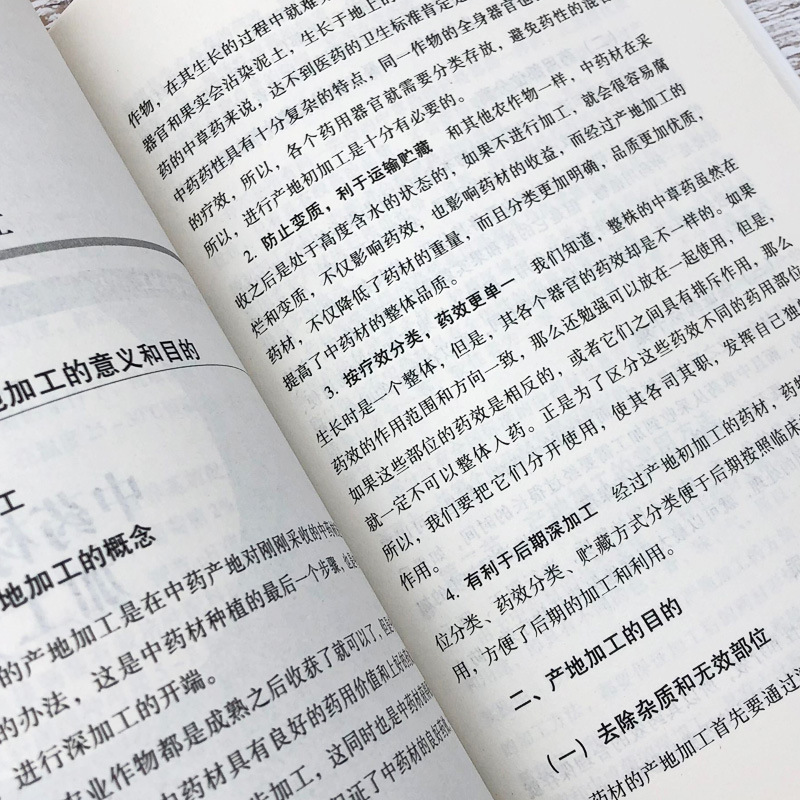 地加工的意义和目的
工
地加工的概念
的产地加工是在中药产地对刚刚采收的中药
的办法，这是中药材种植的最后一个步骤，也
进行深加工的开端。
农业作物都是成熟之后收获了就可以了，但
中药材具有良好的药用价值和
步加工，这同时也是中药材
保证了中药材的良好
在其生长的过程中就难
作物，在其生长的过程中就难
器官和果实会沾染泥土，生长于地上的
药的中草药来说，达不到医药的卫生标准肯定
中药药性具有十分复杂的特点，同一作物的全身器官也
的疗效，所以，各个药用器官就需要分类存放，避免药性的混合
所以，进行产地初加工是十分有必要的。
2. 防止变质，利于运输贮藏　和其他农作物一样，中药材在采
收之后是处于高度含水的状态的，如果不进行加工，就会很容易腐
烂和变质，不仅影响药效，也影响药材的收益，而经过产地加工的
药材，不仅降低了药材的重量，而且分类更加明确，品质更加优质，
提高了中药材的整体品质。
3. 按疗效分类，药效更单一　我们知道，整株的中草药虽然在
生长时是一个整体，但是，其各个器官的药效却是不一样的。如果
药效的作用范围和方向一致，那么还勉强可以放在一起使用，但是，
如果这些部位的药效是相反的，或者它们之间具有排斥作用，那么
就一定不可以整体入药。正是为了区分这些药效不同的药用部位
所以，我们要把它们分开使用，使其各司其职，发挥自己独
作用。
4. 有利于后期深加工　经过产地初加工的药材，药
位分类、药效分类、贮藏方式分类便于后期按照临床
用，方便了后期的加工和利用。
二、产地加工的目的
（一）去除杂质和无效部位
药材的产地加工首先要通过